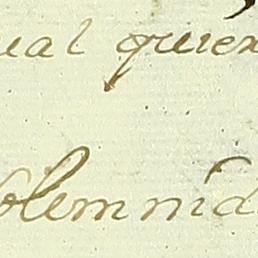 ual quiex
olemnid